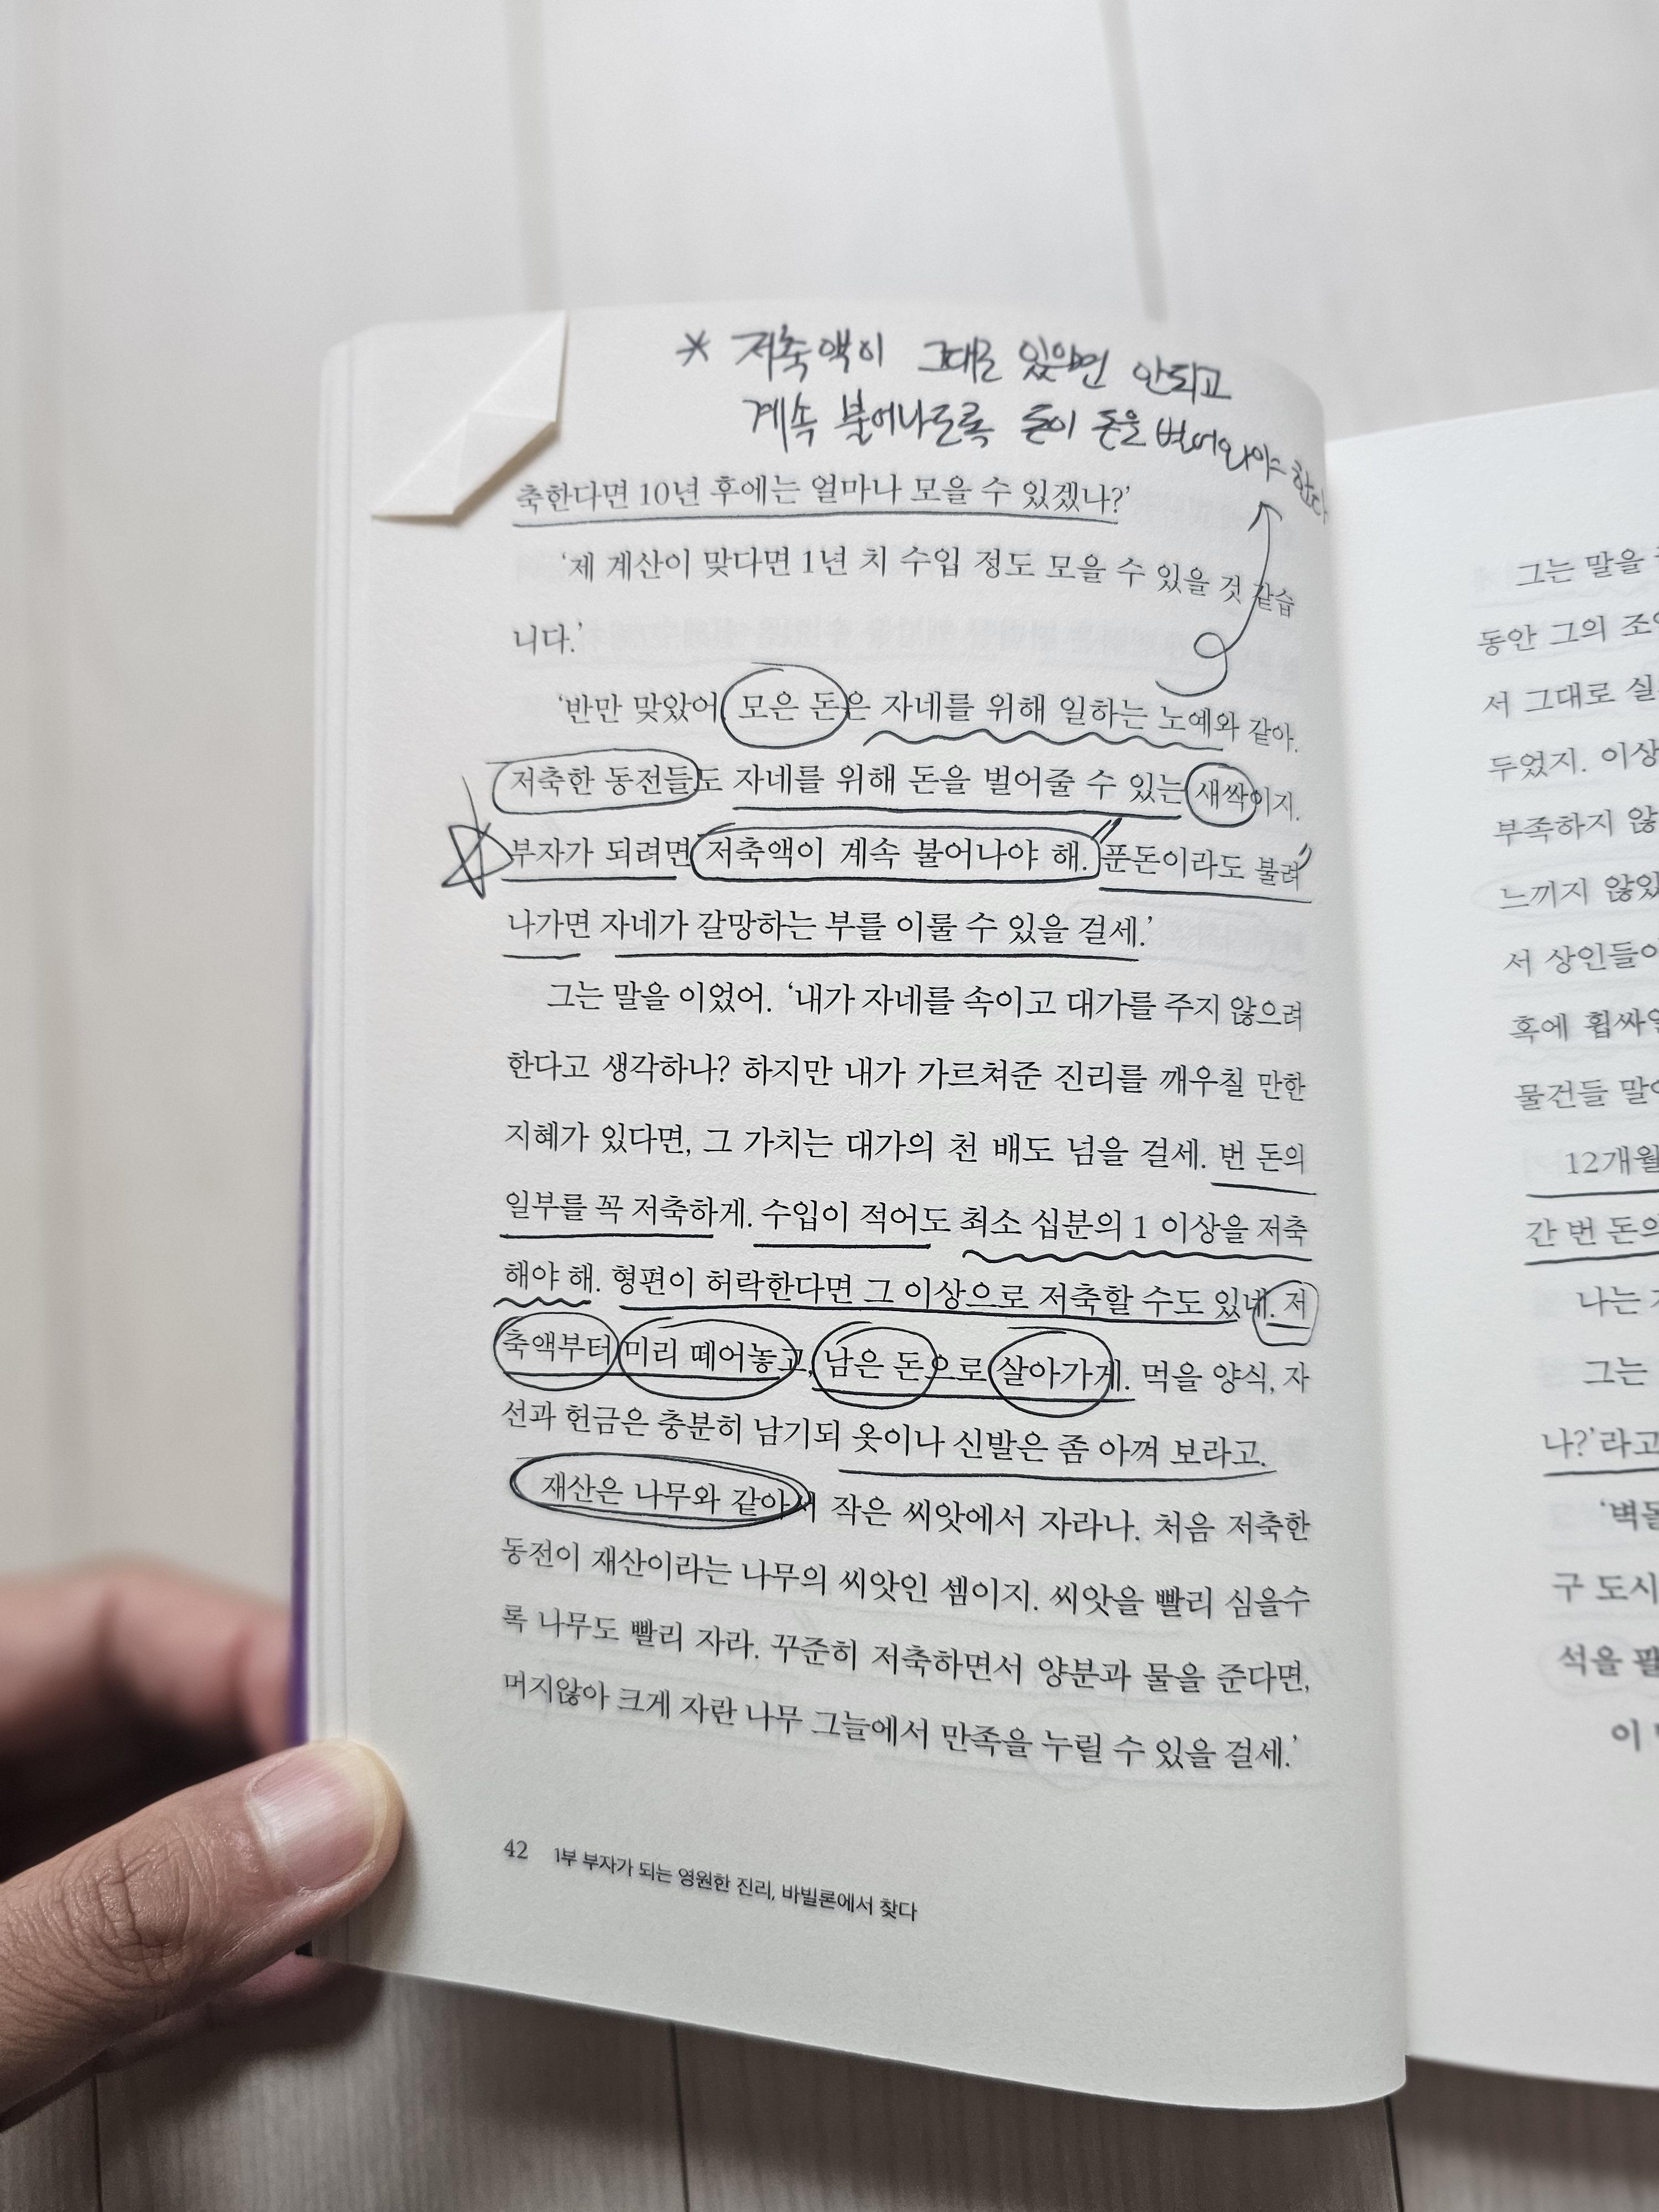 * 저축액이 그대로 있으면 안되고
계속 불어나도록 돈이 돈을 벌어와야 한다
축한다면 10년 후에는 얼마나 모을 수 있겠나?’
‘제 계산이 맞다면 1년 치 수입 정도 모을 수 있을 것 같습
니다.’
‘반만 맞았어. 모은 돈은 자네를 위해 일하는 노예와 같아.
저축한 동전들도 자네를 위해 돈을 벌어줄 수 있는 새싹이지.
부자가 되려면 저축액이 계속 불어나야 해. 푼돈이라도 불려
나가면 자네가 갈망하는 부를 이룰 수 있을 걸세.’
그는 말을 이었어. ‘내가 자네를 속이고 대가를 주지 않으려
한다고 생각하나? 하지만 내가 가르쳐준 진리를 깨우칠 만한
지혜가 있다면, 그 가치는 대가의 천 배도 넘을 걸세. 번 돈의
일부를 꼭 저축하게. 수입이 적어도 최소 십분의 1 이상을 저축
해야 해. 형편이 허락한다면 그 이상으로 저축할 수도 있네. 저
축액부터 미리 떼어놓고, 남은 돈으로 살아가게. 먹을 양식, 자
선과 헌금은 충분히 남기되 옷이나 신발은 좀 아껴 보라고.
재산은 나무와 같아서 작은 씨앗에서 자라나. 처음 저축한
동전이 재산이라는 나무의 씨앗인 셈이지. 씨앗을 빨리 심을수
록 나무도 빨리 자라. 꾸준히 저축하면서 양분과 물을 준다면,
머지않아 크게 자란 나무 그늘에서 만족을 누릴 수 있을 걸세.’
42 1부 부자가 되는 영원한 진리, 바빌론에서 찾다
그는 말을
동안 그의
서 그대로
두었지.
부족하지
느끼지
서 상인들이
혹에
물건들
12개월
간 번 돈의
나는
그는
나?’라고
구 도시
석을
이